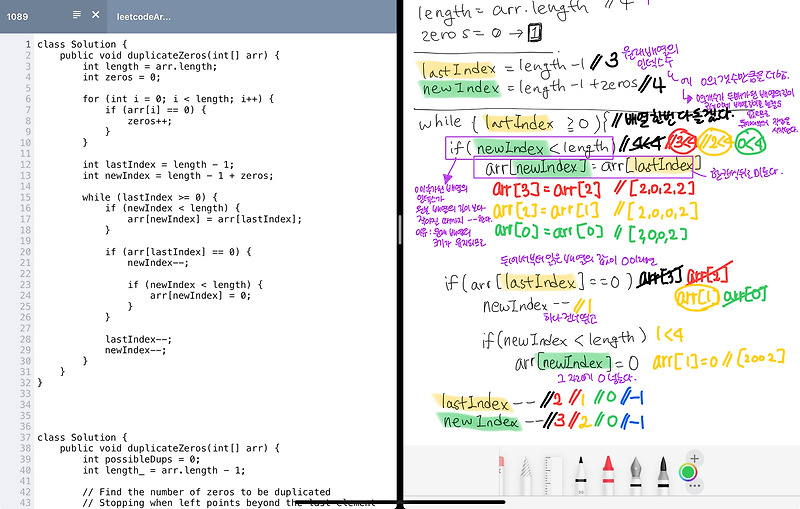 1089
leetcodeAr...
1 class Solution {
2 public void duplicateZeros(int[] arr) {
3 int length = arr.length;
4 int zeros = 0;
5
6 for (int i = 0; i < length; i++) {
7 if (arr[i] == 0) {
8 zeros++;
9 }
10 }
11
12 int lastIndex = length - 1;
13 int newIndex = length - 1 + zeros;
14
15 while (lastIndex >= 0) {
16 if (newIndex < length) {
17 arr[newIndex] = arr[lastIndex];
18 }
19
20 if (arr[lastIndex] == 0) {
21 newIndex--;
22
23 if (newIndex < length) {
24 arr[newIndex] = 0;
25 }
26 }
27
28 lastIndex--;
29 newIndex--;
30 }
31 }
32 }
33
34
35
36
37 class Solution {
38 public void duplicateZeros(int[] arr) {
39 int possibleDups = 0;
40 int length_ = arr.length - 1;
41
42 // Find the number of zeros to be duplicated
43 // Stopping when left points beyond the last element
length = arr.length // 4
zeros = 0 → 1
lastIndex = length-1 // 3 원래 배열의 인덱스수
newIndex = length-1+zeros // 4
while ( lastIndex ≥ 0) { // 배열 한번 다 돌겠다.
if( newIndex < length) // 4<4 // 3<4 // 2<4 0<4
arr[newIndex] = arr[lastIndex]
arr[3] = arr[2] // [2,0,2,2]
arr[2] = arr[1] // [2,0,0,2]
arr[0] = arr[0] // [2,0,0,2]
뒤에서부터 읽은 배열의 값이 0이라면
if(arr[lastIndex]==0) arr[3] arr[2]
arr[1] arr[0]
newIndex -- // 1
하나 건너뛰고
if(newIndex < length) 1<4
arr[newIndex] = 0 arr[1]=0 // [2002]
그 자리에 0 넣는다.
lastIndex -- //2 //1 //0 //-1
newIndex -- //3 //2 //0 //-1